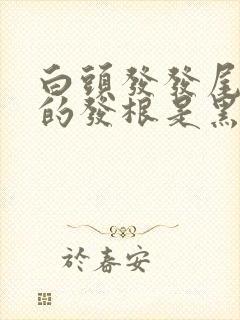 白頭發發尾
的發根是黑
於春安